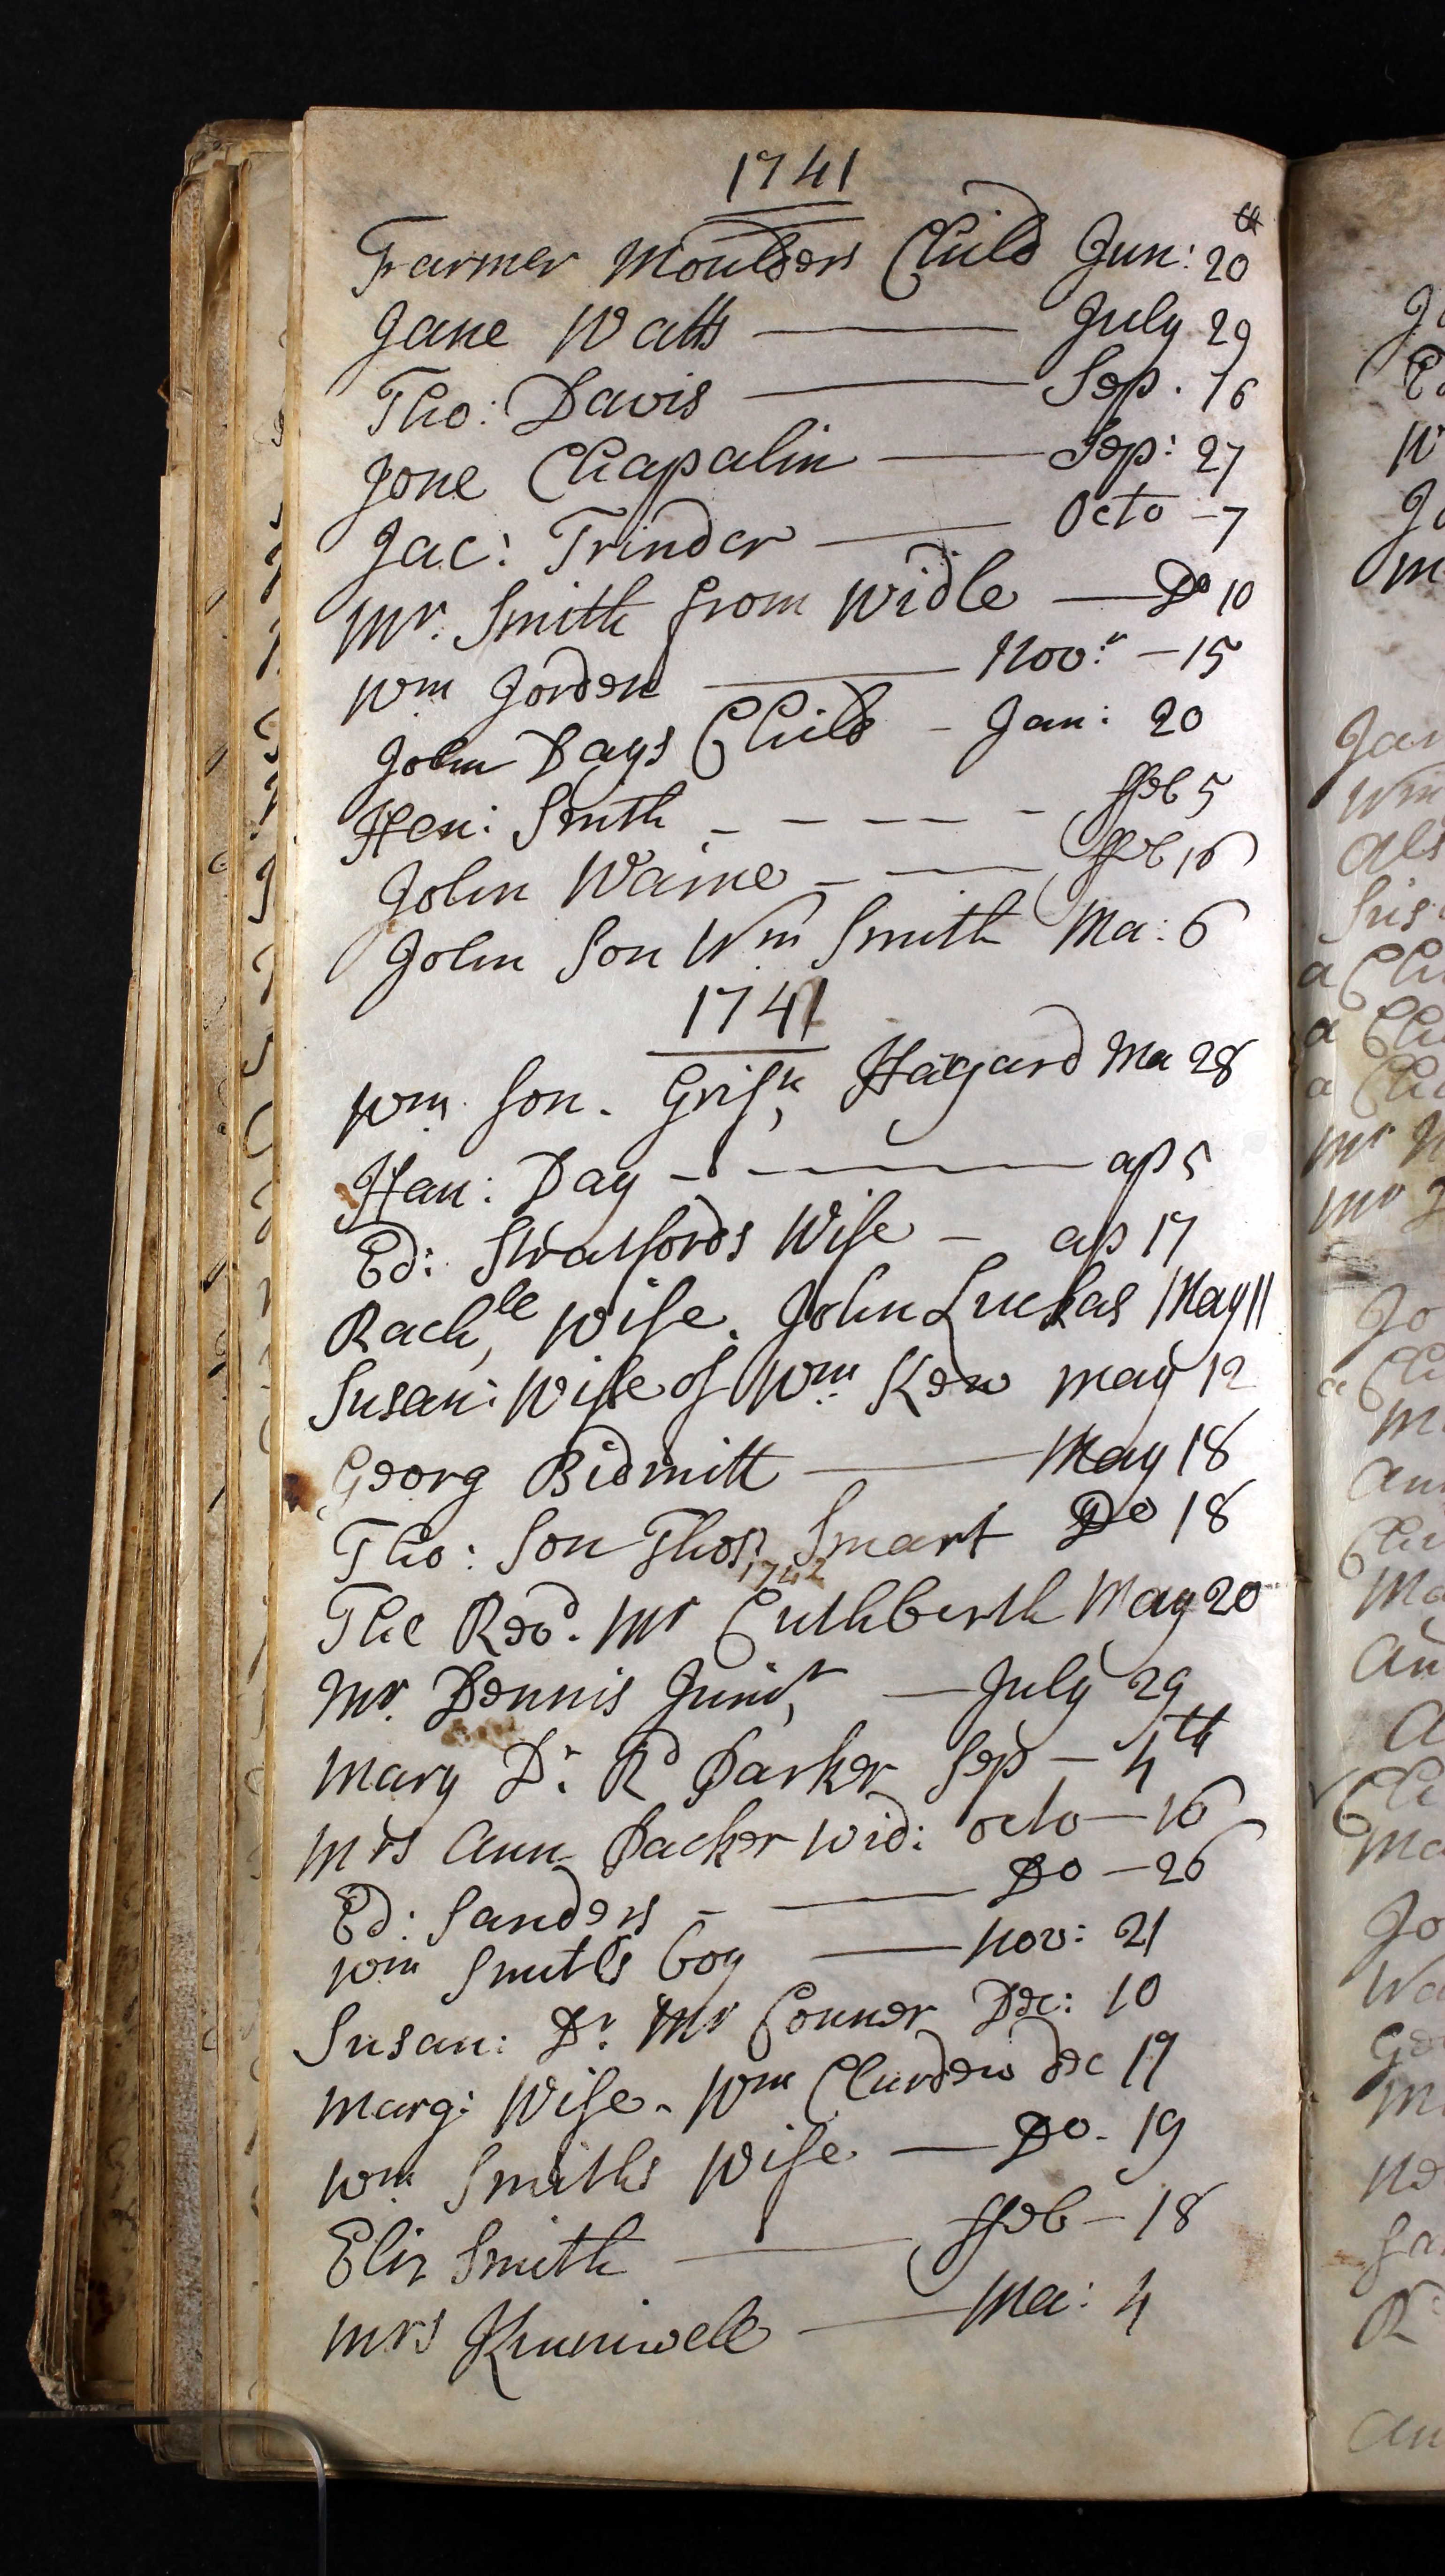 1741
Farmer Moulders Child Jun: 20th
Jane Watts — July 29
Tho: Davis — Sep. 16
Jone Chapalin — Sep: 27
Jac: Trinder — Octo - 7
Mr. Smith from Widle — Do 10
Wm Jorden — Nov:r - 15
John Days Child - Jan: 20
Hen: Smith - - - - - ffeb 5
John Waine - — ffeb 16
John Son Wm Smith Ma: 6
1741
Wm Son. Grifn Hagard Ma 28
Han: Day - - — ap 5
Ed: Stratfords Wife - ap 17
Rachle Wife. John Luckas May 11
Susan: Wife of Wm Kew may 12
Georg Bidmitt — May 18
Tho: Son Thos: Smart Do 18
1742
The Revd. Mr Cuthberth May 20
Mr. Dennis Junir — July 29
Mary Dr. Rd Parker Sep — 4th
Mrs Ann Packer Wid: octo — 16
Ed: Sanders - — Do - 26
Wm Smiths boy — Nov: 21
Susan: Dr. Mr Conner Dec: 10
Marg: Wife. Wm Dec 17
Wm Smiths Wife — Do. 19
Eliz Smith — ffeb - 18
Mrs — Ma: 4